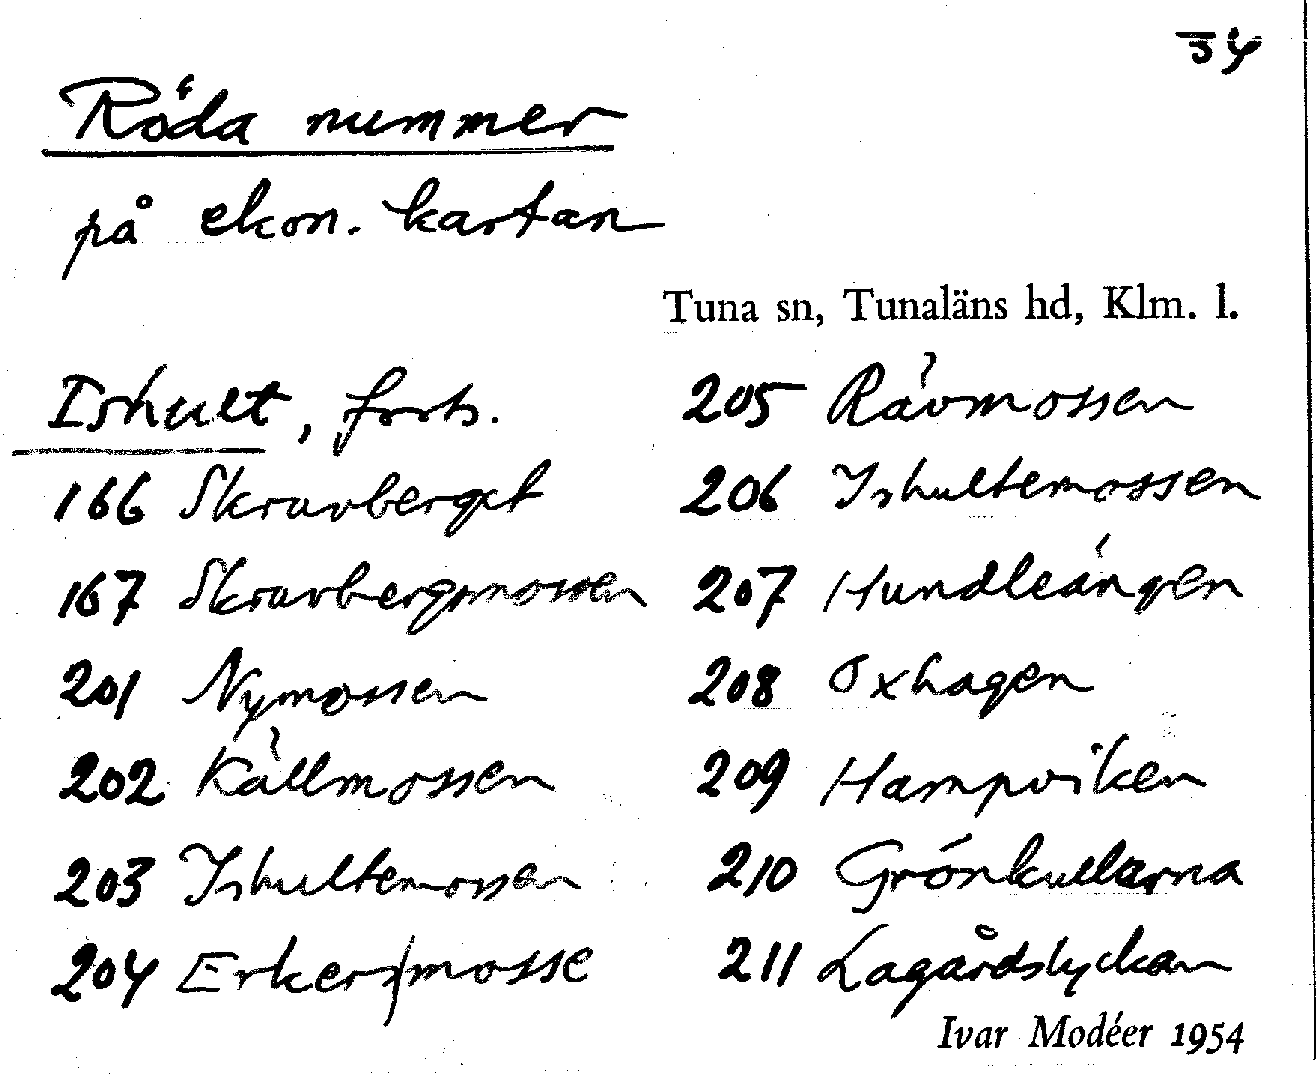 34
Röda nummer
på ekon. kartan
Tuna sn, Tunaläns hd, Klm. l.
Ishult, forts.
166 Skruvberget
167 Skruvbergsmossen
201 Nymossen
202 Källmossen
203 Ishultemossen
204 Erkers mosse
205 Rävmossen
206 Ishultemossen
207 Hundleängen
208 Oxhagen
209 Hampviken
210 Grönkullarna
211 Lagårdslyckan
Ivar Modéer 1954